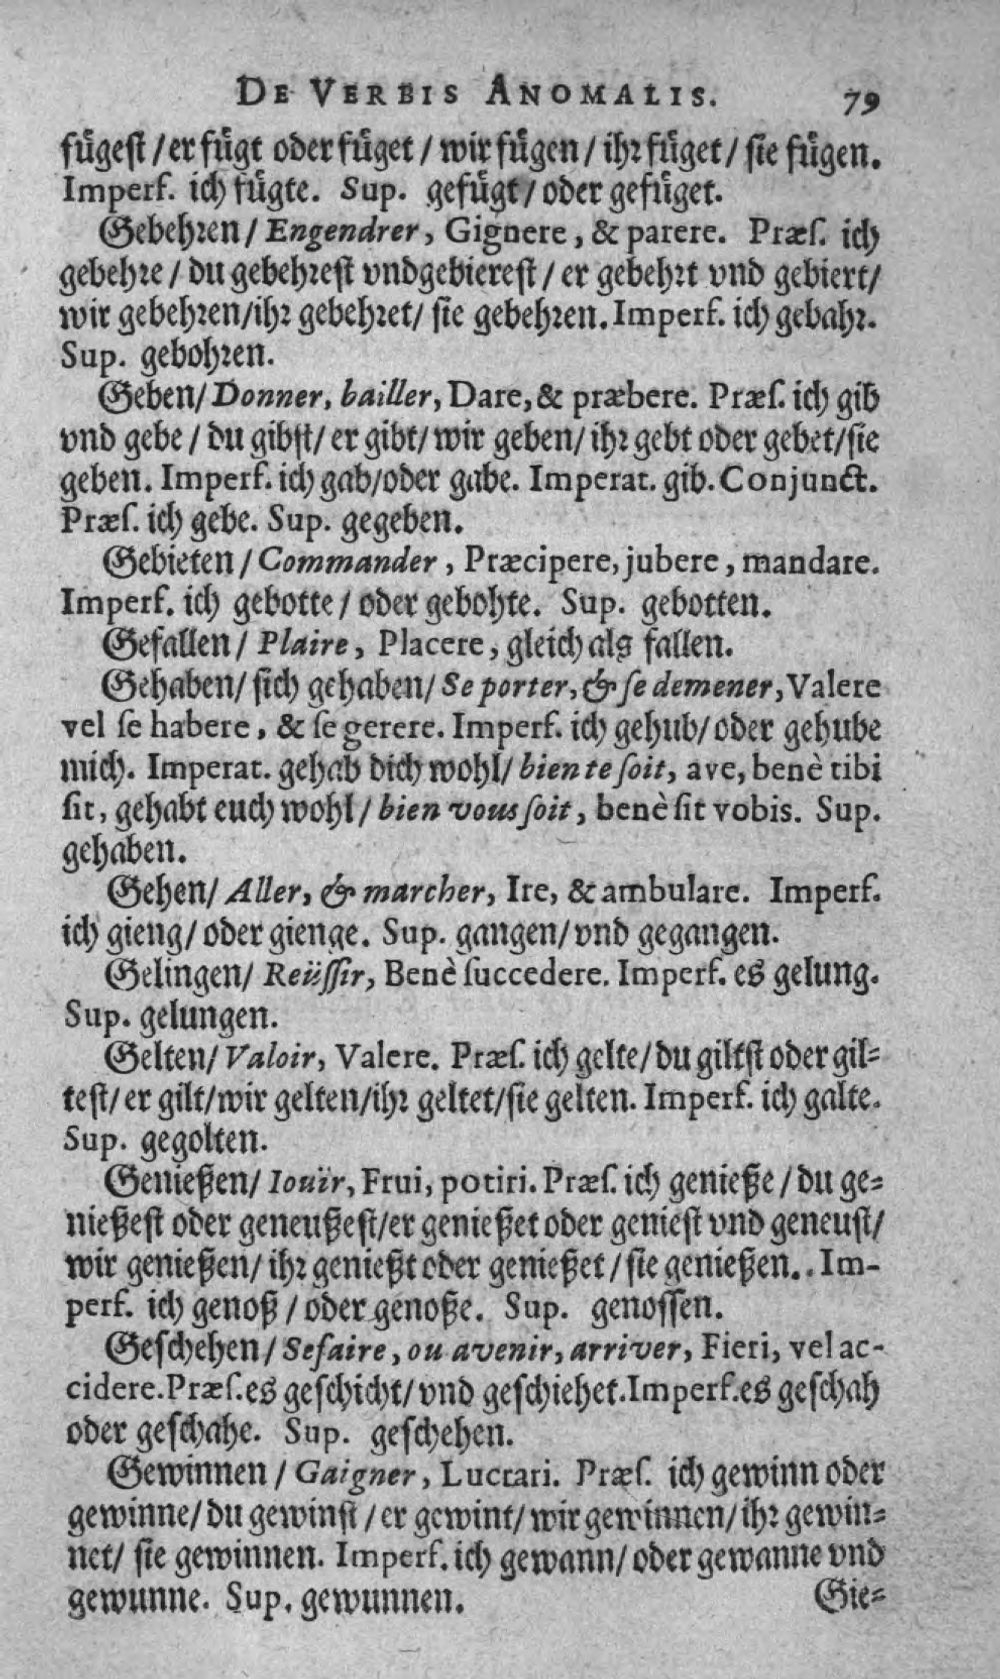 DE VERBIS ANOMALIS. 79
fuͤgeſt / er fuͤgt oder fuͤget / wir fuͤgen / ihr fuͤget / ſie fuͤgen.
Imperf. ich fuͤgte. Sup. gefuͤgt / oder gefuͤget.
Gebehren / Engendrer, Gignere, & parere. Præſ. ich
gebehre / du gebehreſt vnd gebiereſt / er gebehrt vnd gebiert/
wir gebehren/ihr gebehret/ ſie gebehren. Imperf. ich gebahr.
Sup. gebohren.
Geben/ Donner, bailler, Dare, & præbere. Præſ. ich gib
vnd gebe / du gibſt/ er gibt/ wir geben/ ihr gebt oder gebet/ſie
geben. Imperf. ich gab/oder gabe. Imperat. gib. Conjunct.
Præſ. ich gebe. Sup. gegeben.
Gebieten / Commander, Præcipere, jubere, mandare.
Imperf. ich gebotte / oder gebohte. Sup. gebotten.
Gefallen / Plaire, Placere, gleich als fallen.
Gehaben/ ſich gehaben/ Se porter, & ſe demener, Valere
vel ſe habere, & ſe gerere. Imperf. ich gehub/ oder gehube
mich. Imperat. gehab dich wohl/ bien te ſoit, ave, benè tibi
ſit, gehabt euch wohl / bien vous ſoit, benè ſit vobis. Sup.
gehaben.
Gehen/ Aller, & marcher, Ire, & ambulare. Imperf.
ich gieng/ oder gienge. Sup. gangen/ vnd gegangen.
Gelingen/ Reüſſir, Benè ſuccedere. Imperf. es gelung.
Sup. gelungen.
Gelten/ Valoir, Valere. Præſ. ich gelte/ du giltſt oder gil⸗
teſt/ er gilt/wir gelten/ihr geltet/ſie gelten. Imperf. ich galte.
Sup. gegolten.
Genießen/ Iouïr, Frui, potiri. Præſ. ich genieße / du ge⸗
nießeſt oder geneußeſt/er genießet oder genieſt vnd geneuſt/
wir genießen/ ihr genießt oder genießet / ſie genießen. Im-
perf. ich genoß / oder genoße. Sup. genoſſen.
Geſchehen / Se faire, ou avenir, arriver, Fieri, vel ac-
cidere. Præſ. es geſchicht/ vnd geſchiehet. Imperf. es geſchah
oder geſchahe. Sup. geſchehen.
Gewinnen / Gaigner, Lucrari. Præſ. ich gewinn oder
gewinne/ du gewinſt / er gewint/ wir gewinnen/ ihr gewin⸗
net/ ſie gewinnen. Imperf. ich gewann/ oder gewanne vnd
gewunne. Sup. gewunnen. Gie⸗